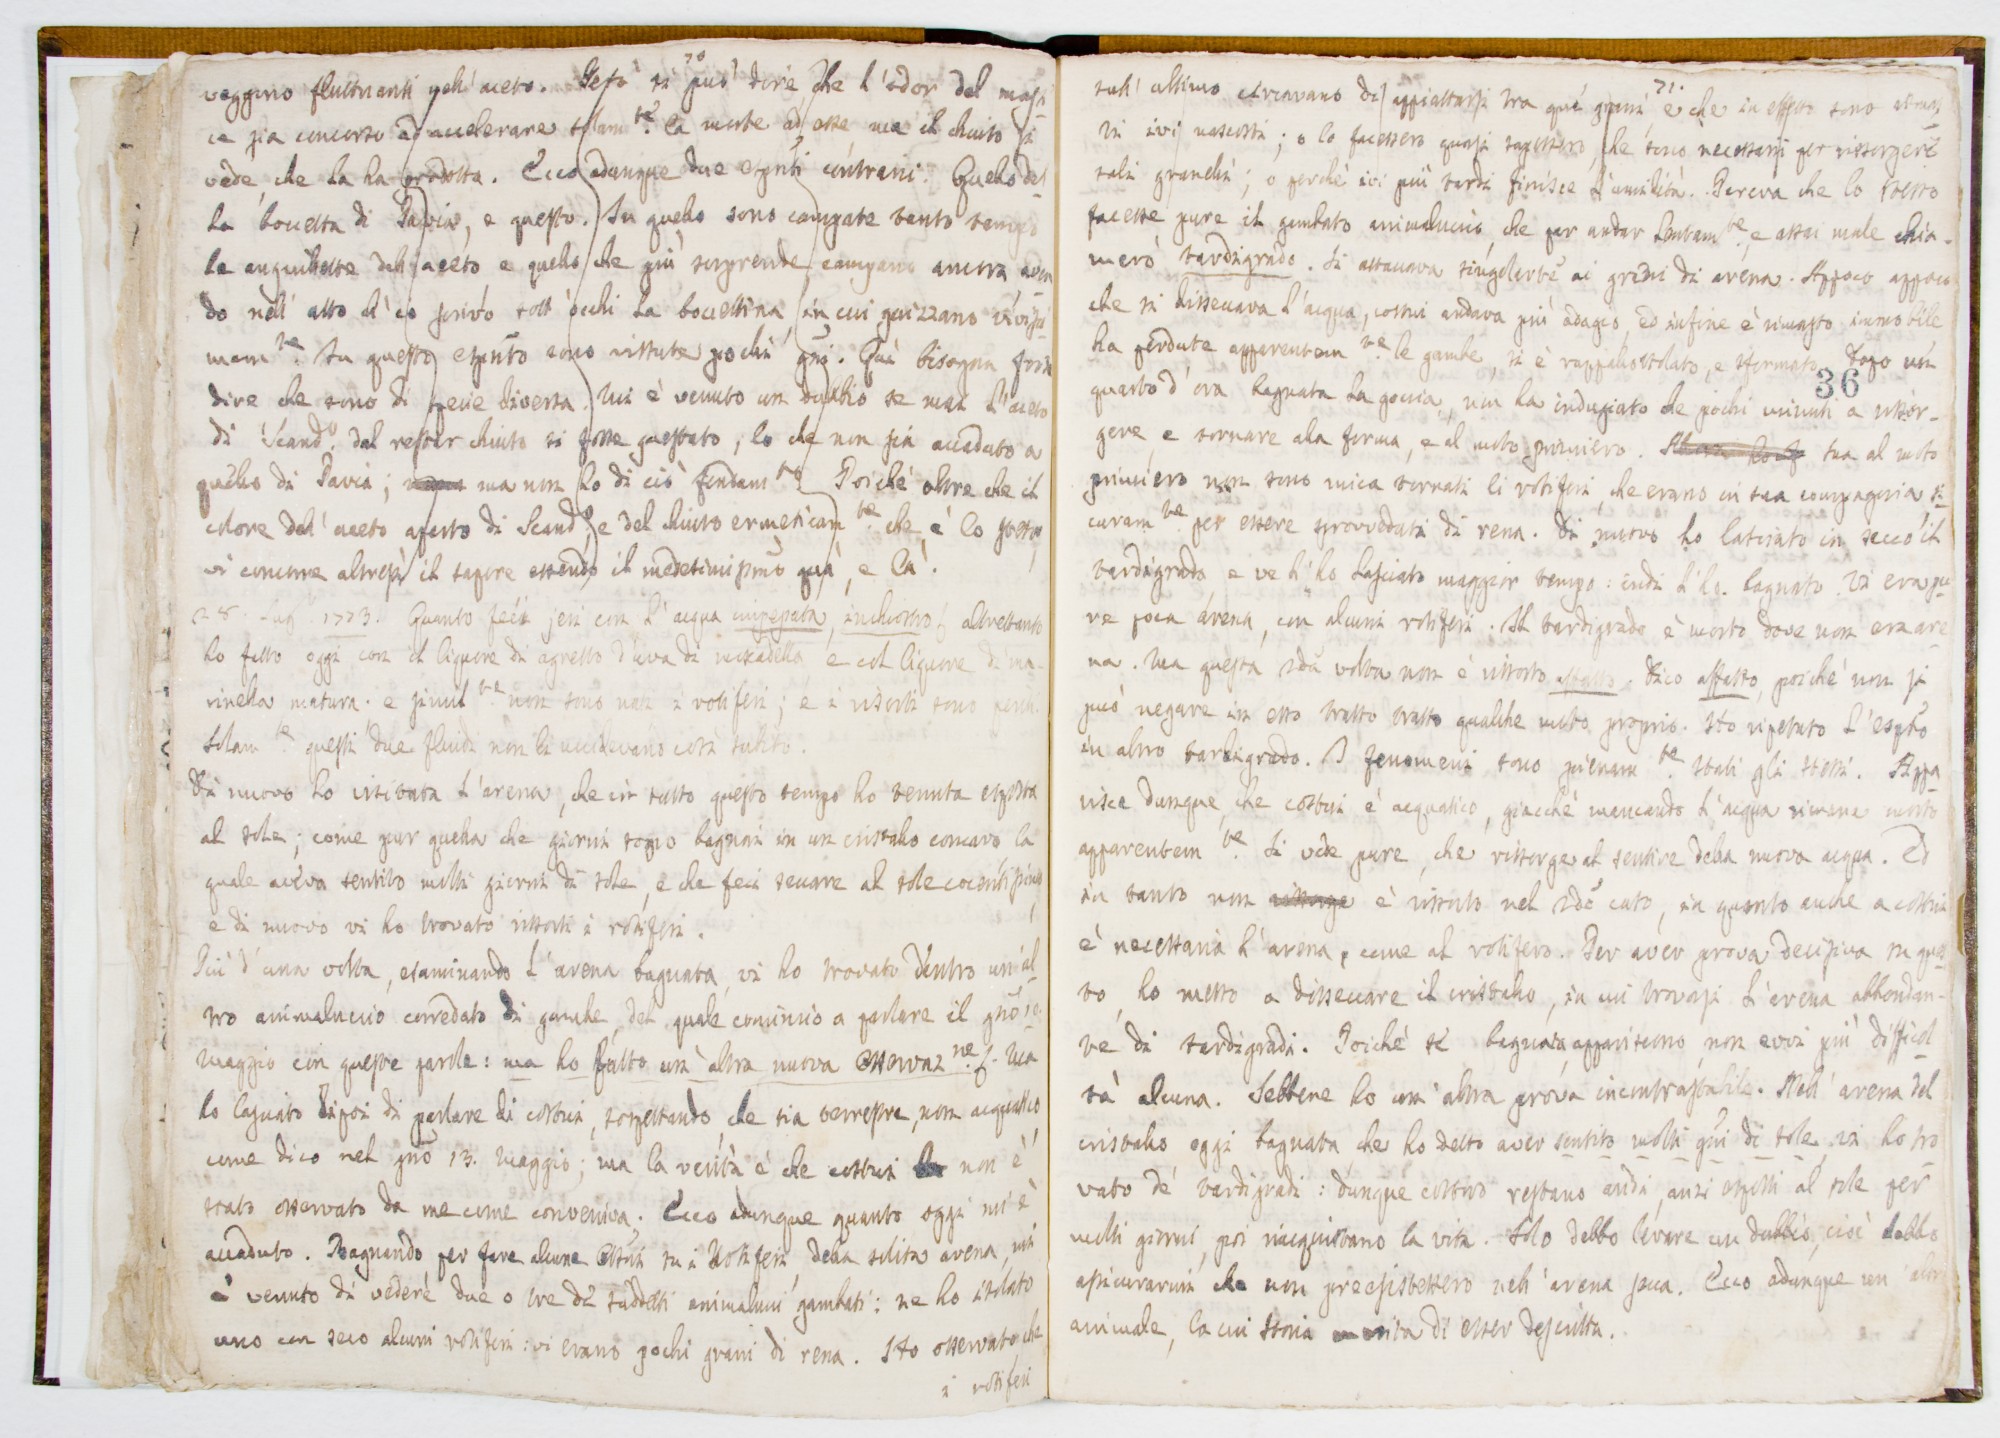 70
veggono fluttuanti nell'aceto. Però si può dire che l'odor del masti
ce sia concorso ad accelerare solam.te la morte ad esse ma il chiuto si
vede, che la ha prodotta. Ecco adunque due espti contrarii. Quello del
la boccetta di Pavia, e questo. In quello sono campate tanto tempo
le anguillette dell'aceto e quello che più sorprende campano ancora, aven
do nell'atto ch'io scrivo sott'occhi la boccettina, in cui guizzano vivissi
mam.te. In questo espto sono vissute pochi gni. Qui bisogna forse
dire che sono di specie diversa. Mi è venuto un dubbio se mai l'aceto
di Scand.o dal restar chiuso si fosse guastato, lo che non sia accaduto a
quello di Pavia; ma non ho di ciò fondam.to Poiché oltre che il
colore dell'aceto aperto di Scand.o, e del chiuso ermeticam.te che è lo stesso
vi concorre altresì il sapore essendo il medesimissimo quà, e là.
28. Lug.o 1773. Quanto feci jeri con l'acqua impepata, inchiostro altrettanto
ho fatto oggi con il liquore di agresto d'uva di moscadella e col liquore di ma
rinella matura. e simil.te non sono nati i rotiferi; e i risorti sono periti.
Solam.te questi due fluidi non li uccidevano così subito.
Di nuovo ho visitata l'arena, che in tutto questo tempo ho tenuta esposta
al sole; come pur quella che giorni sono bagnai in un cristallo concavo la
quale aveva sentito molti giorni di sole, e che feci seccare al sole cocentissimo
e di nuovo vi ho trovato risorti i rotiferi.
Più d'una volta, esaminando l'arena bagnata, vi ho trovato dentro un'al
tro animaluccio corredato di gambe, del quale comincio a parlare il gno 10.
Maggio con queste parole: ma ho fatto un'altra nuova osservaz.ne Ma
ho lasciato dipoi di parlare di costui, sospettando, che sia terrestre, non acquatico,
come dico nel gno 13. Maggio; ma la verità è che costui non è
stato osservato da me come conveniva. Ecco adunque quanto oggi mi è
accaduto. Bagnando per fare alcune ossni su i Rotiferi della solita arena, mi
è venuto di vedere due o tre de' suddetti animalucci gambati: ne ho isolato
uno con seco alcuni rotiferi: vi erano pochi grani di rena. Ho osservato, che
i rotiferi
71.
sull'ultimo cercavano di appiattarsi tra que' grani e che in effetto sono
vi ivi nascosti; o lo facessero quasi sapessero, che sono necessarj per rissorgere
tali granelli; o perché ivi più tardi finisce l'umidità. Pareva che lo stesso
facesse pure il gambato animaluccio, che per andar lentam.te, e assai male chia-
merò tardigrado. Si attaccava singolarte ai grani di arena. Appoco appoco
che si dissecava l'acqua, costui andava più adagio, ed infine è rimasto immobile
ha perdute apparentem.te le gambe, si è rappallottolato, e sformato. Dopo un
36
quarto d'ora bagnata la goccia, non ha indugiato che pochi minuti a risor-
gere, e tornare alla forma, e al moto primiero. Ma al moto
primiero non sono mica tornati li rotiferi, che erano in sua compagnia, si
curam.te per essere sprovveduti di rena. Di nuovo ho lasciato in secco il
tardigrado, e ve l'ho lasciato maggior tempo: indi l'ho bagnato. Vi era pu
re poca arena, con alcuni rotiferi. Il tardigrado è morto dove non era are
na. Ma questa 2da volta non è risorto affatto. Dico affatto, poiché non si
può negare in esso tratto tratto qualche moto proprio. Ho ripetuto l'espto
in altro tardigrado. I fenomeni sono pienam.te stati gli stessi. Appa
risce dunque, che costui è acquatico, giacché mancando l'acqua rimane morto
apparentem.te. Si vede pure, che rissorge al sentire della nuova acqua. Ed
in tanto non è risorto nel 2do caso, in quanto anche a costui
è necessaria l'arena, come al rotifero. Per aver prova decisiva su ques
to, ho messo a disseccare il cristallo, in cui trovasi l'arena abbondan-
te di tardigradi. Poiché se bagnata appariscono, non evvi più difficol
tà alcuna. Sebbene ho un'altra prova incontrastabile. Nell'arena del
cristallo oggi bagnata che ho detto aver sentito molti gni di sole, vi ho tro
vato de' tardigradi: dunque costoro restano aridi, anzi esposti al sole per
molti giorni, poi riacquistano la vita. Solo debbo levare un dubbio, cioè debbo
assicurarmi che non preesistessero nell'arena secca. Ecco adunque un altro
animale, la cui storia merita di esser descritta.